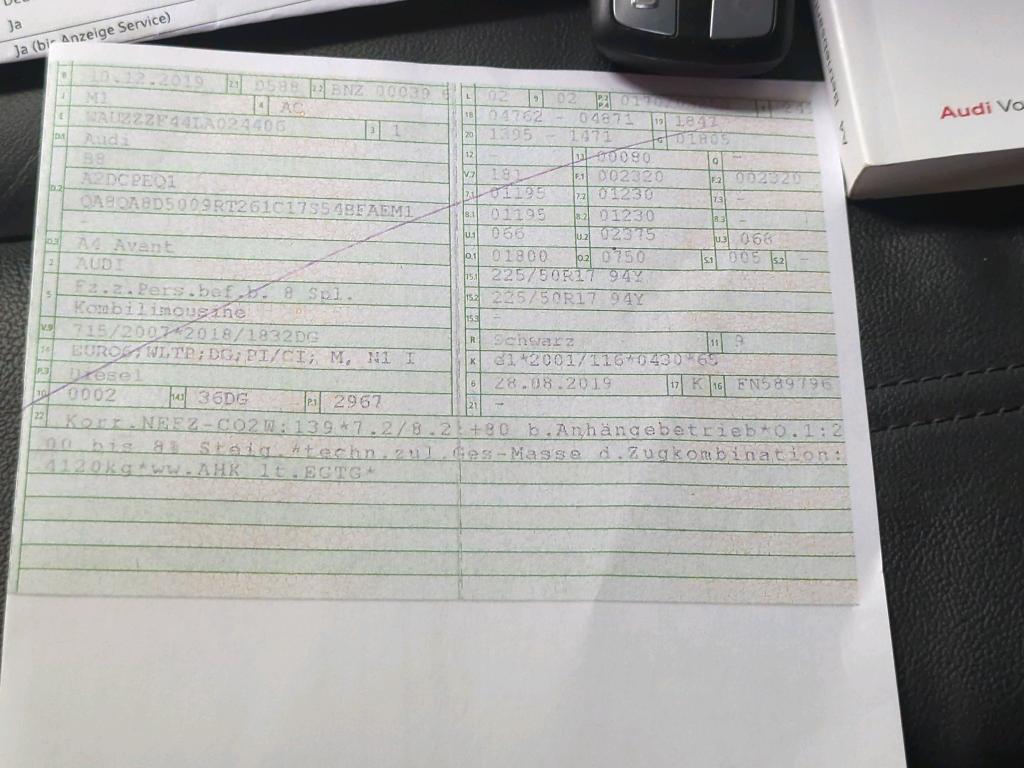 Ja
Ja (bis Anzeige Service)
Audi Vo
B 10.12.2019 2.1 D588 2.2 BNZ 00039 6
J M1 4 AC
E WAUZZZF44LA024406 3 1
D.1 Audi
B8
D.2 A2DCPEQ1
QA8QA8D5009RT261C17S54BFAEM1
-
D.3 A4 Avant
2 AUDI
5 Fz.z.Pers.bef.b. 8 Spl.
Kombilimousine
V.9 715/2007*2018/1832DG
14 EURO6;WLTP;DG;PI/CI; M, N1 I
P.3 Diesel
10 0002 14.1 36DG P.1 2967
L 02 9 02 P.2 P.4
18 04762 - 04871 19 1842
20 1395 - 1471 G 01805
12 - 13 00080 Q -
V.7 181 F.1 002320 F.2 002320
7.1 01195 7.2 01230 7.3 -
8.1 01195 8.2 01230 8.3 -
U.1 066 U.2 02375 U.3 066
O.1 01800 O.2 0750 S.1 005 S.2 -
15.1 225/50R17 94Y
15.2 225/50R17 94Y
15.3 -
R Schwarz 11 9
K e1*2001/116*0430*65
6 28.08.2019 17 K 16 FN589796
21 -
22 Korr.NEFZ-CO2W:139*7.2/8.2:+80 b.Anhängebetrieb*O.1:2
00 bis 8% Steig.*techn.zul.Ges-Masse d.Zugkombination:
4120kg*ww.AHK lt.EGTG*